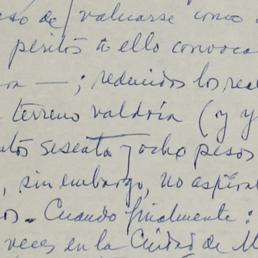 eso de valuarse como
peritos a ello convoca
a —; reducidos los rea
terreno valdría (y y
ntos sesenta y ocho pesos
, sin embargo, no aspira
os. Cuando finalmente:
veces en la Ciudad de M